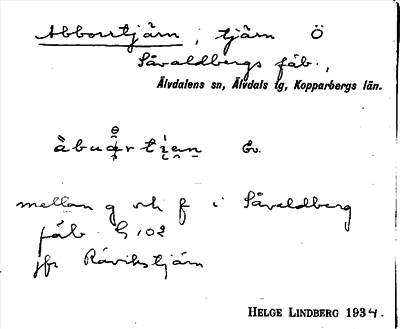 Abborrtjärn, tjärn Ö
Såvaldbergs fäb.,
Älvdalens sn, Älvdals tg, Kopparbergs län.
Ev.
mellan g och f i Såvaldberg
fäb. G 102
jfr Råvikstjärn
HELGE LINDBERG 1934.